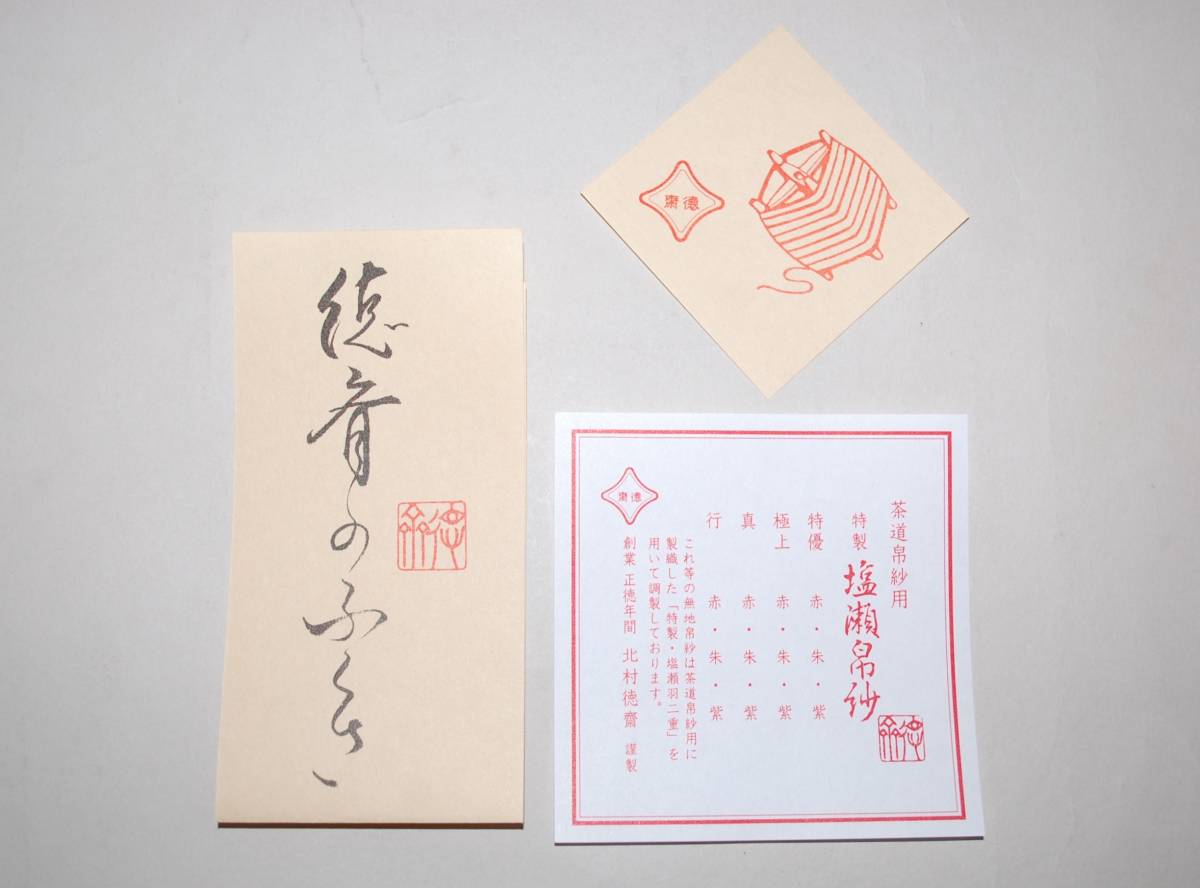 徳斎のふくさ
徳齋
徳齋
徳齋
茶道帛紗用
特製 塩瀬帛紗
特優 赤・朱・紫
極上 赤・朱・紫
真 赤・朱・紫
行 赤・朱・紫
これ等の無地帛紗は茶道帛紗用に
製織した「特製・塩瀬羽二重」を
用いて調製しております。
創業 正徳年間 北村徳齋 謹製
徳齋
徳齋